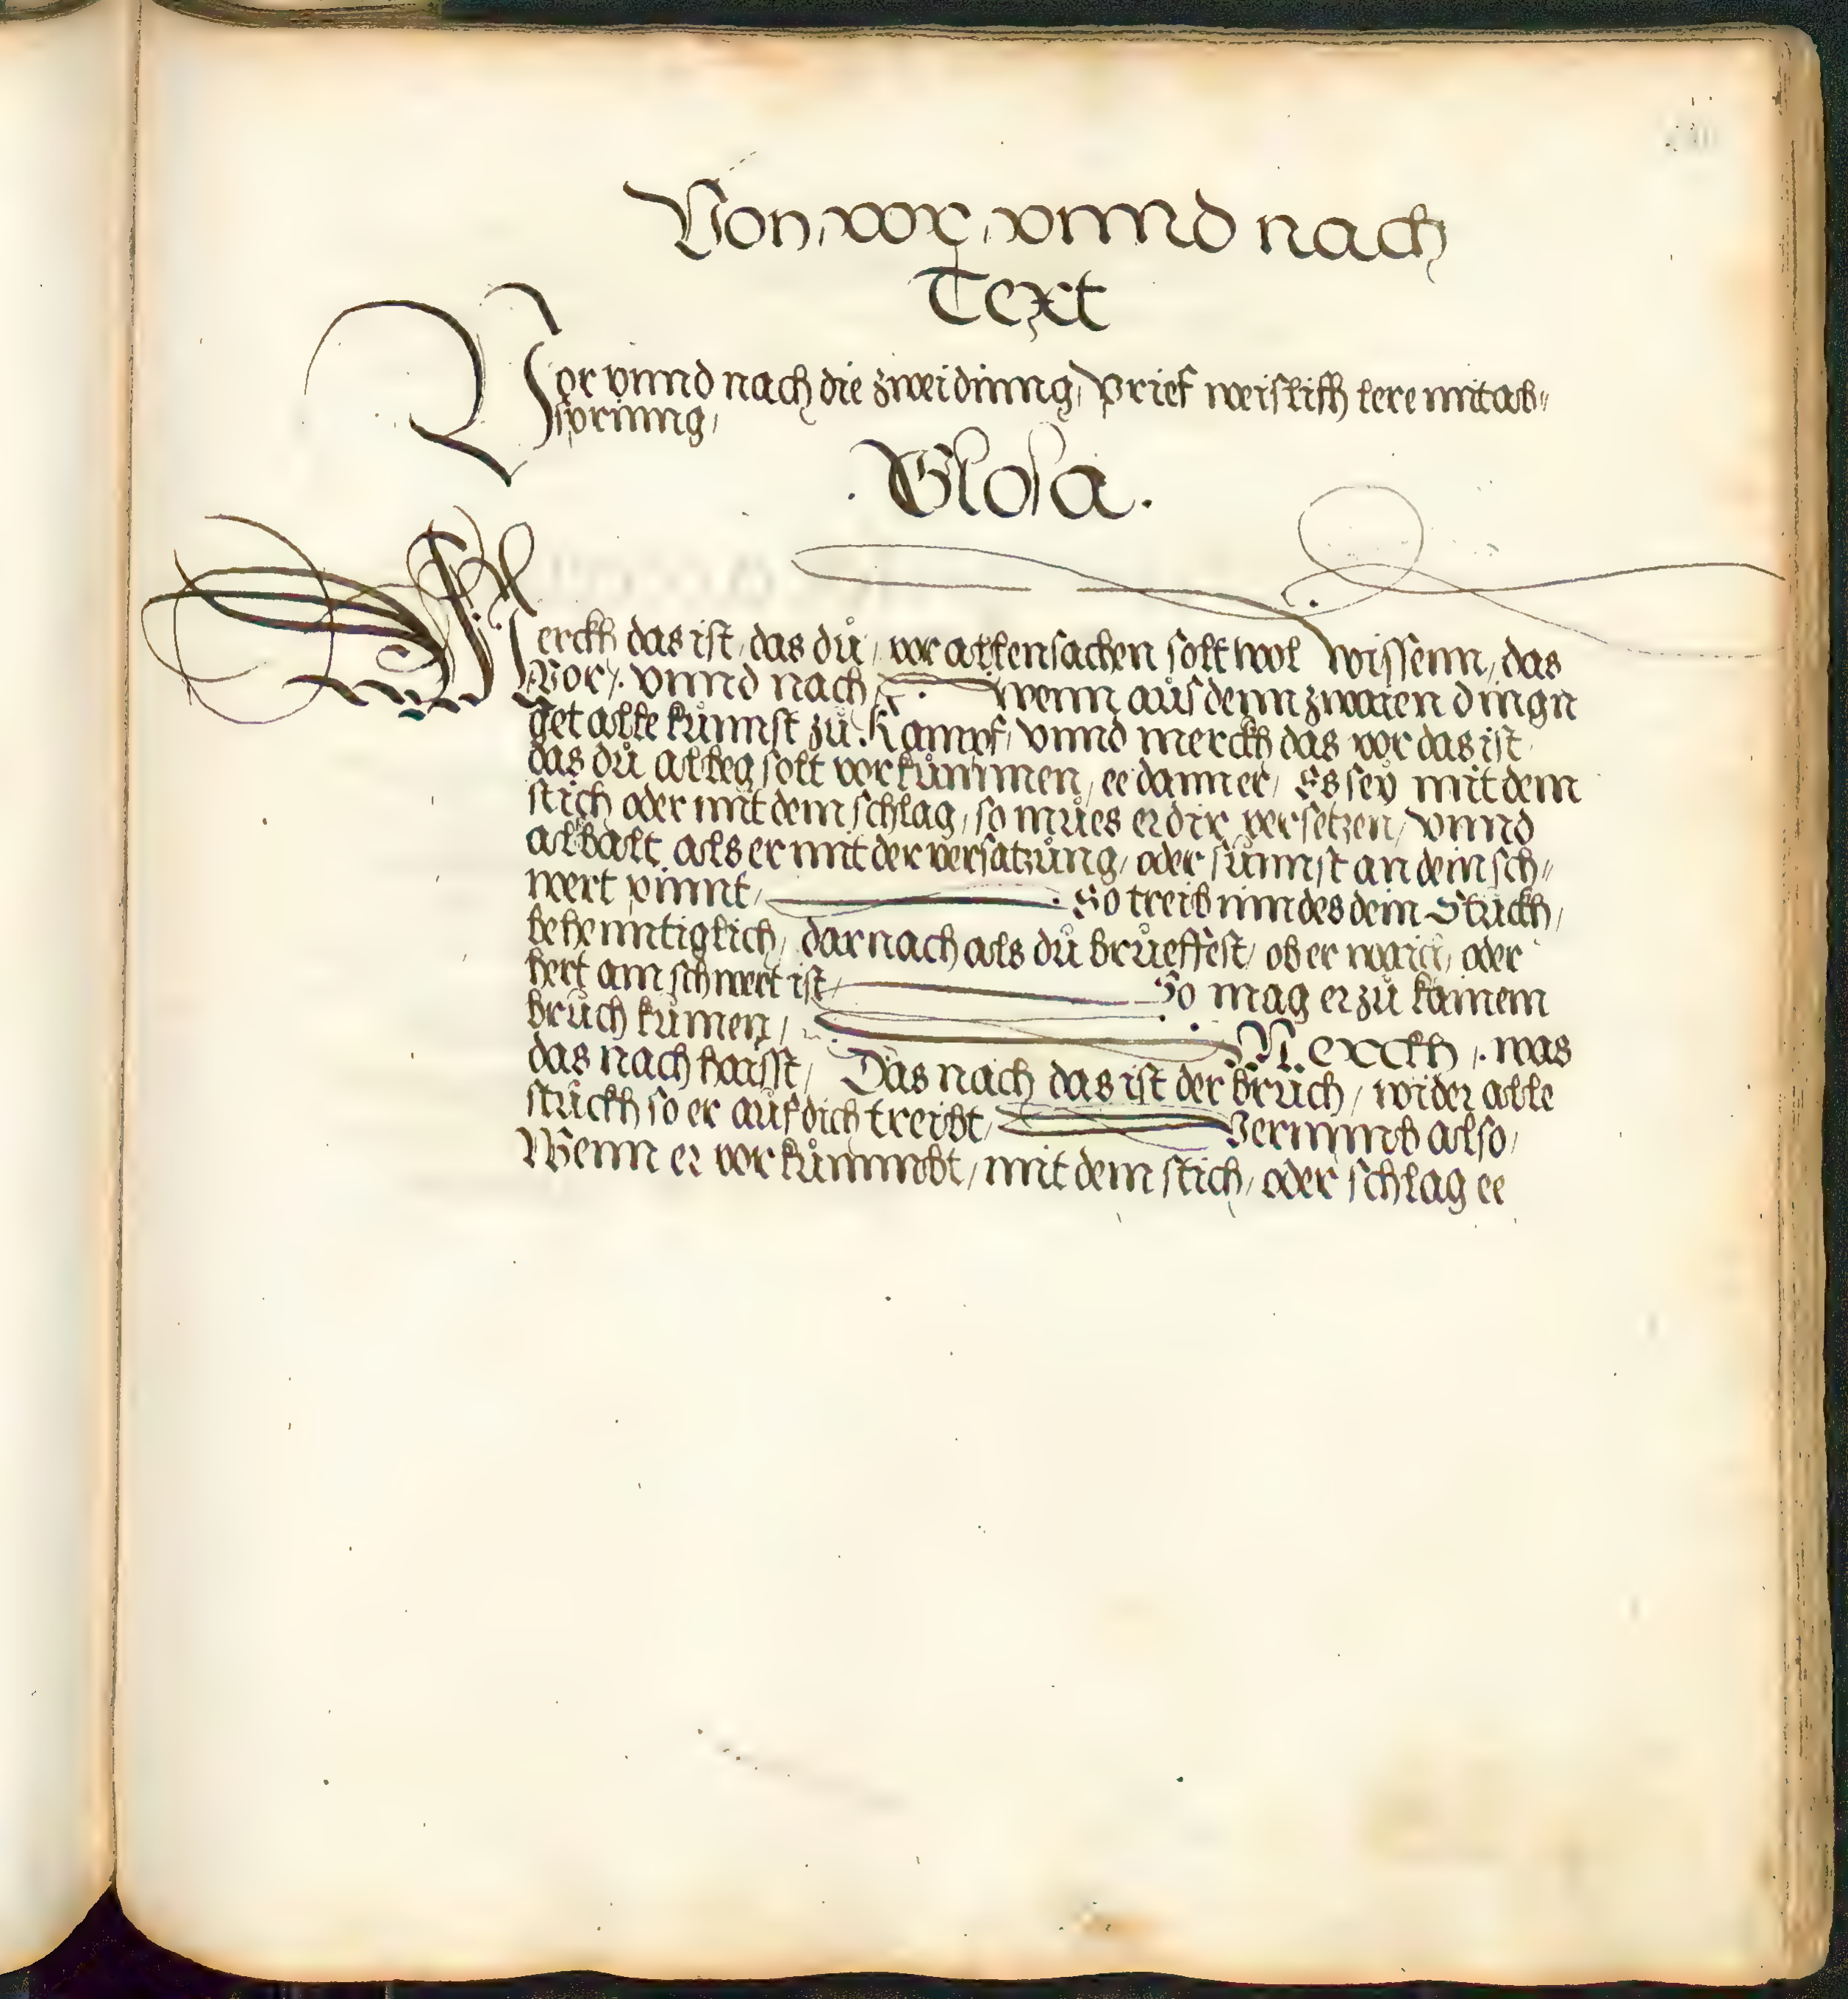 Von, vor, vnnd nach
Text
Vor vnnd nach die zwei dinng, Brief weislich lere mit ab⸗
sprinng,
. Glosa .
Merckh das ist, das dů, vor allen sachen solt wol wissenn, das
Vor /. vnnd nach wenn aůs denn zwaien dingn
get alle kůnnst zů Kampf, vnnd merckh das vor das ist
das dů alleg solt vor kůmmen, ee dann er, Es sey mit dem
stich oder mit dem schlag, so můes er dir versetzen, vnnd
albalt als er mit der versatzůng, oder sůnnst an dein sch⸗
wert pinnt, So treib inn des dein Stůckh,
behenntiglich, dar nach als dů brůeffest, ob er waich, oder
hert am schwert ist, So mag er zů kainem
brůch kůmen, Merckh /. was
das nach haisst, Das nach das ist der brůch, wider alle
stůckh so er aůf dich treibt, Vernimb also,
Wenn er vor kůmmbt, mit dem stich, oder schlag ee